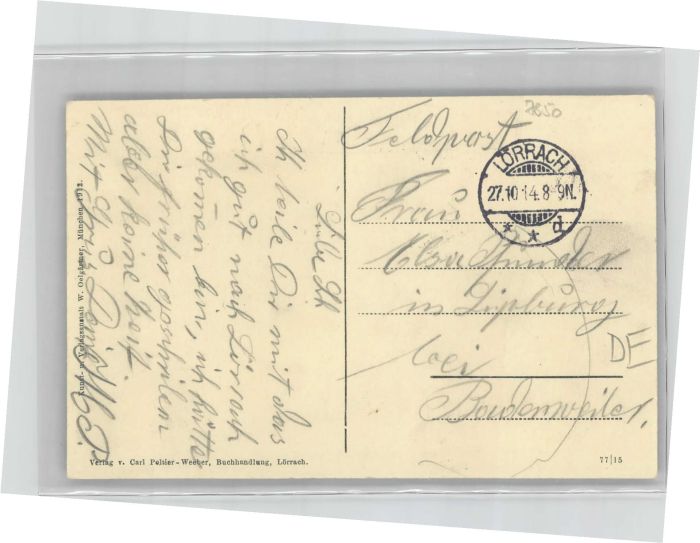 7650
Feldpost
LÖRRACH
27.10 14.8-9N.
* * d
Frau
Elsa
in Lipburg
bei
Badenweiler.
DE
Ich teile Dir mit das
ich gut nach Lörrach
gekomen bin, ich hätte
Dir früher geschrieben
aber keine Zeit.
Mit
Kunst- u. Verlagsanstalt W. Oelgärtner, München 1912.
Verlag v. Carl Poltier-Weeber, Buchhandlung, Lörrach.
77|15